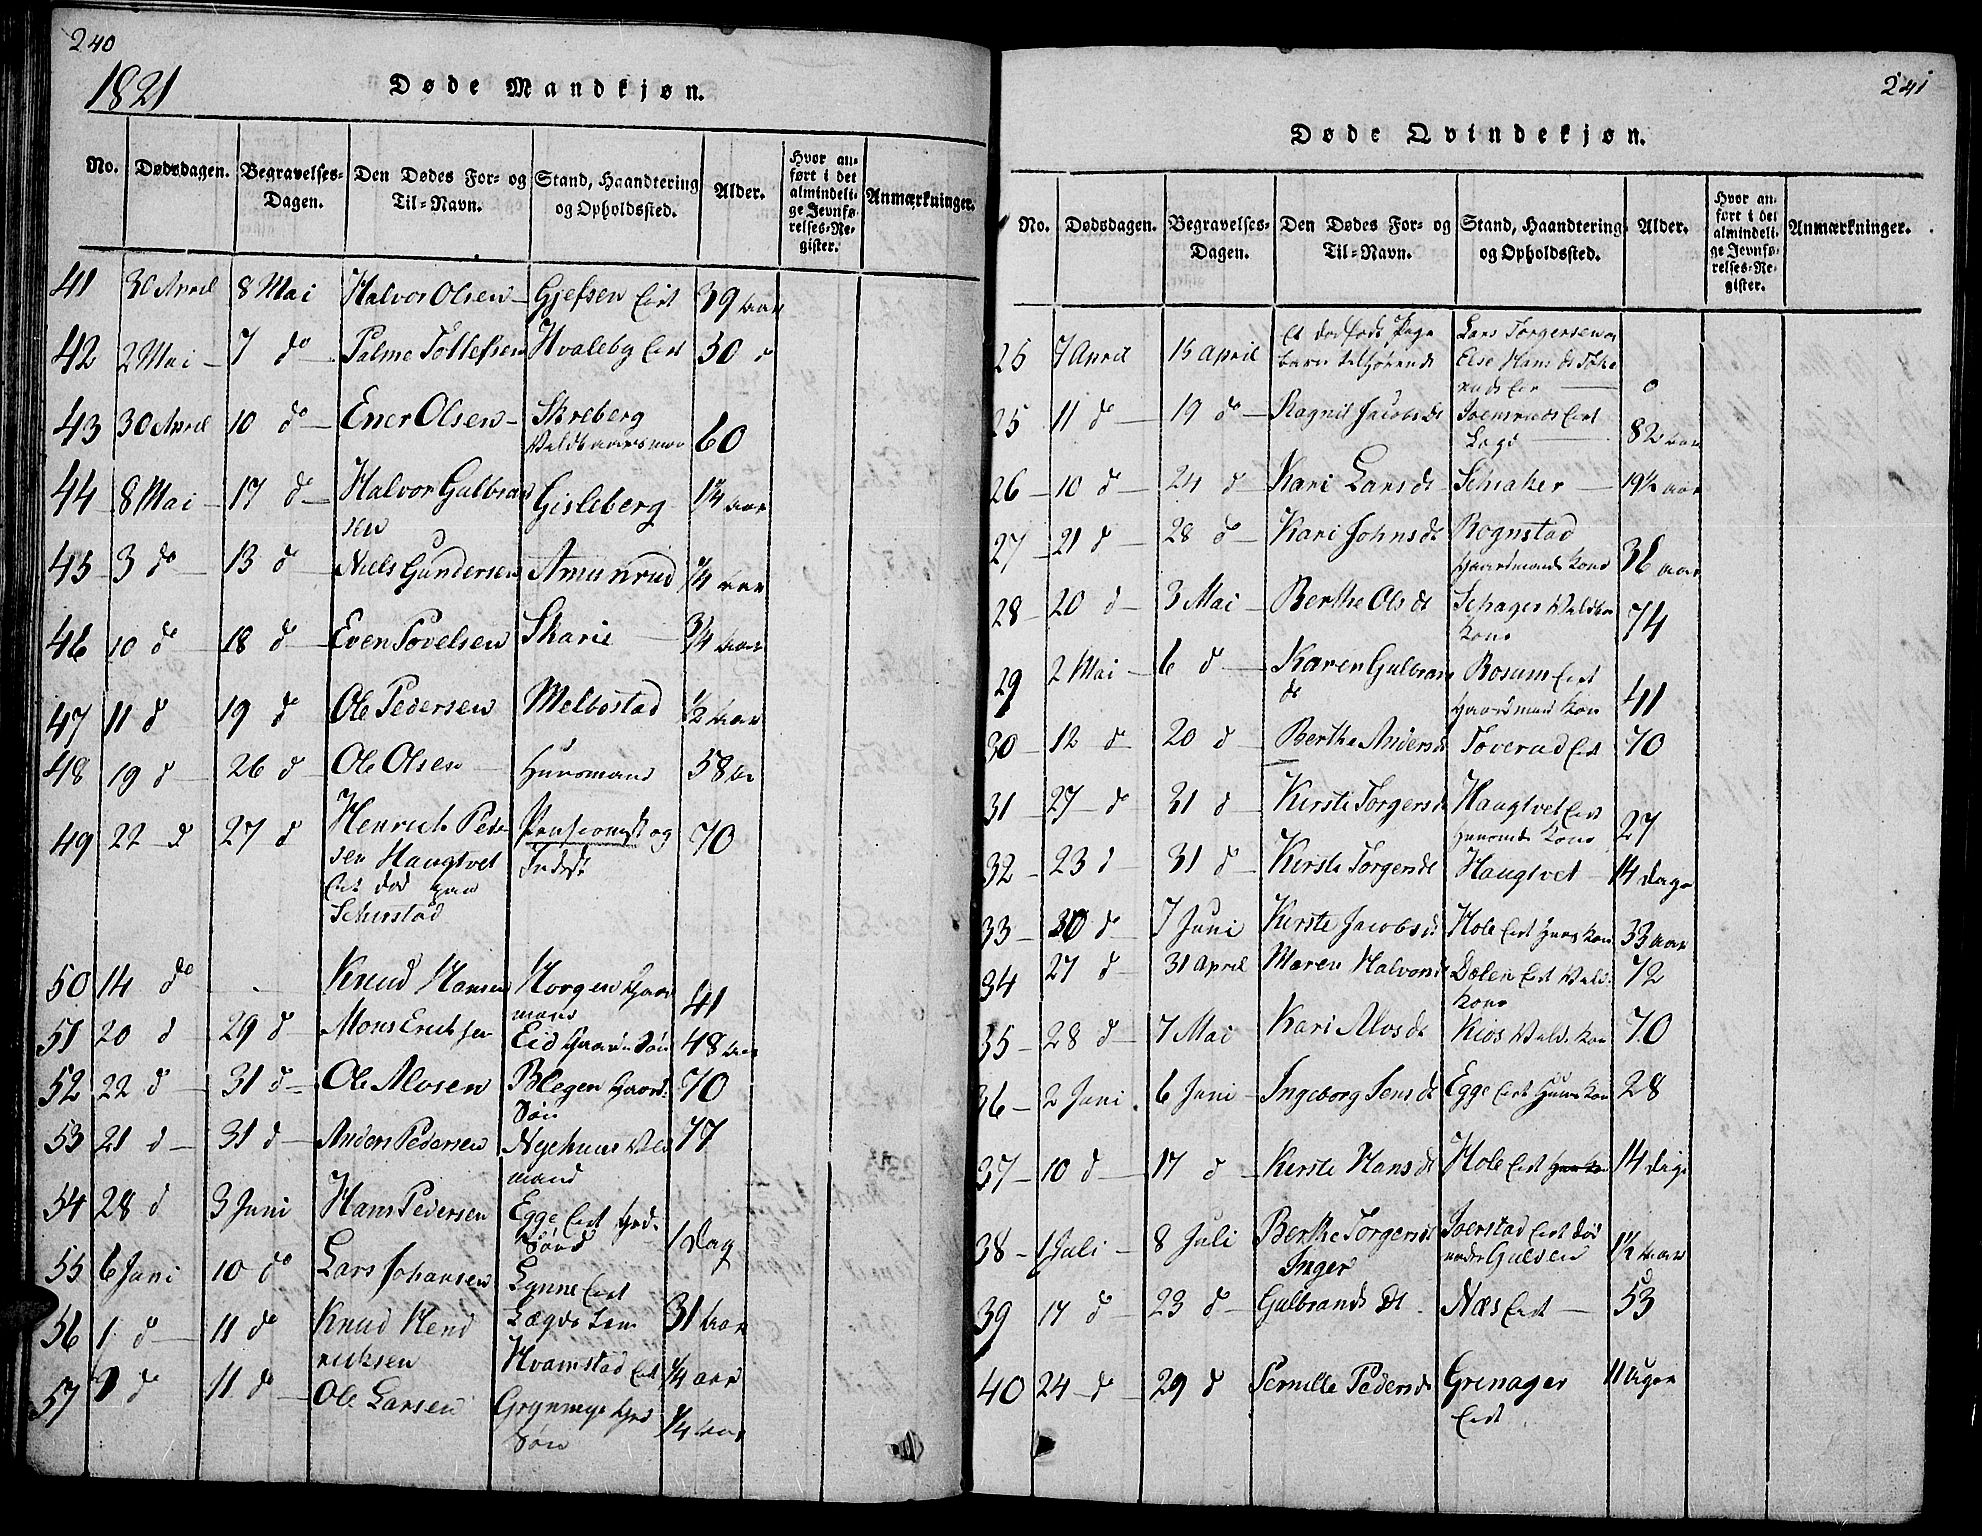 240
1821
Døde Mandkjøn.
No. Dødsdagen. Begravelses-Dagen. Den Dødes For- og Til-Navn. Stand, Haandtering og Opholdssted. Alder. Hvor anført i det almindelige Jevnførelses-Register. Anmærkninger.
41 30 April 8 Mai Halvor Olsen Gjefsen Eiet 39 aar
42 2 Mai 7 do Palme Tollefsen Hvaleby Eiet 30 d
43 30 April 10 do Ener Olsen Skreberg 60
44 8 Mai 17 d Halvor Gulbran
sen Gisleberg 1/4 aar
45 3 do 13 d Niels Gundersen Amunrud 1/4 aar
46 10 d 18 d Even Povelsen Skarie 3/4 aar
47 11 d 19 d Ole Pedersen Melbostad 1/2 aar
48 19 d 26 d Ole Olsen Huusmand 58 aar
49 22 d 27 d Henrich Peder
sen Haugtvet
Eiet død paa
Schirstad Pensionist og
Inderst 70
50 14 do Knud Hansen Horgen Gaard
mand 41
51 20 d 29 d Mons Erichsen Eid Gaard Søn 48 aar
52 22 d 31 d Ole Alvsen Blegen Gaard
Søn 70
53 21 d 31 d Anders Pedersen Nyehuus
mand 77
54 28 d 3 Juni Hans Pedersen Egge Eiet Grd
Sønd 1 Dag
55 6 Juni 10 do Lars Johansen Lynne Eiet
Lægds Lem 31 aar
56 1 d 11 do Knud Hend
ricksen Hvamstad Eiet 1/4 aar
57 9 d 11 do Ole Larsen Grynmyr Grd
Søn 1/4 aar
241
Døde Qvindekjøn.
No. Dødsdagen. Begravelses-Dagen. Den Dødes For- og Til-Navn. Stand, Haandtering og Opholdssted. Alder. Hvor anført i det almindelige Jevnførelses-Register. Anmærkninger.
25 7 April 15 April Et dødfødt Pige
barn tilhørende Lars Torgersen og
Else Hans dt 0
25 11 d 19 d Ragnil Jacobsdt Eiet
Lægd 82 aar
26 10 d 24 d Kari Larsdt Schiaker 19 1/2 aar
27 21 d 28 d Kari Johnsdt Rognstad
Gaardmands Kone 36 aar
28 20 d 3 Mai Berthe Olsdt Schager
Kone 74
29 2 Mai 6 d Karen Gulbrans
dt Rosum Eiet
Gaardmand Kon 41
30 12 d 20 d Berthe Andersd Toverud Eiet 70
31 27 d 31 d Kirsti Torgersd Haugtvet Eiet
Huusmds Kone 27
32 23 d 31 d Kirsti Torgersdt Haugtvet 14 Dage
33 30 d 7 Juni Kirste Jacobsd Hole Eiet Huus Kon 33 aar
34 27 d 31 April Maren Halvorsd Dølen Eiet
Kone 72
35 28 d 7 Mai Kari Alvsdt Kiøs Kon 70
36 2 Juni 6 Juni Ingeborg Jensdt Egge Eiet Huus Kon 28
37 10 d 17 d Kirste Hansdt Hole Eiet 14 Dage
38 1 Juli 8 Juli Berthe Torgersdt Joerstad Eiet død
under Gulden 1 1/2 aar
39 17 d 23 d Inger
Gulbrands Dt Næs Eiet 53
40 24 d 29 d Pernille Pedersd Grinager
Eiet 11 Uger